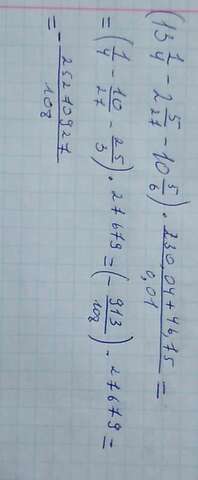 (13 1/4 - 2 5/27 - 10 5/6) · (230,04 + 46,75)/0,01 =
= (1/4 - 10/27 - 25/3) · 27679 = (- 913/108) · 27679 =
= - 25270927/108